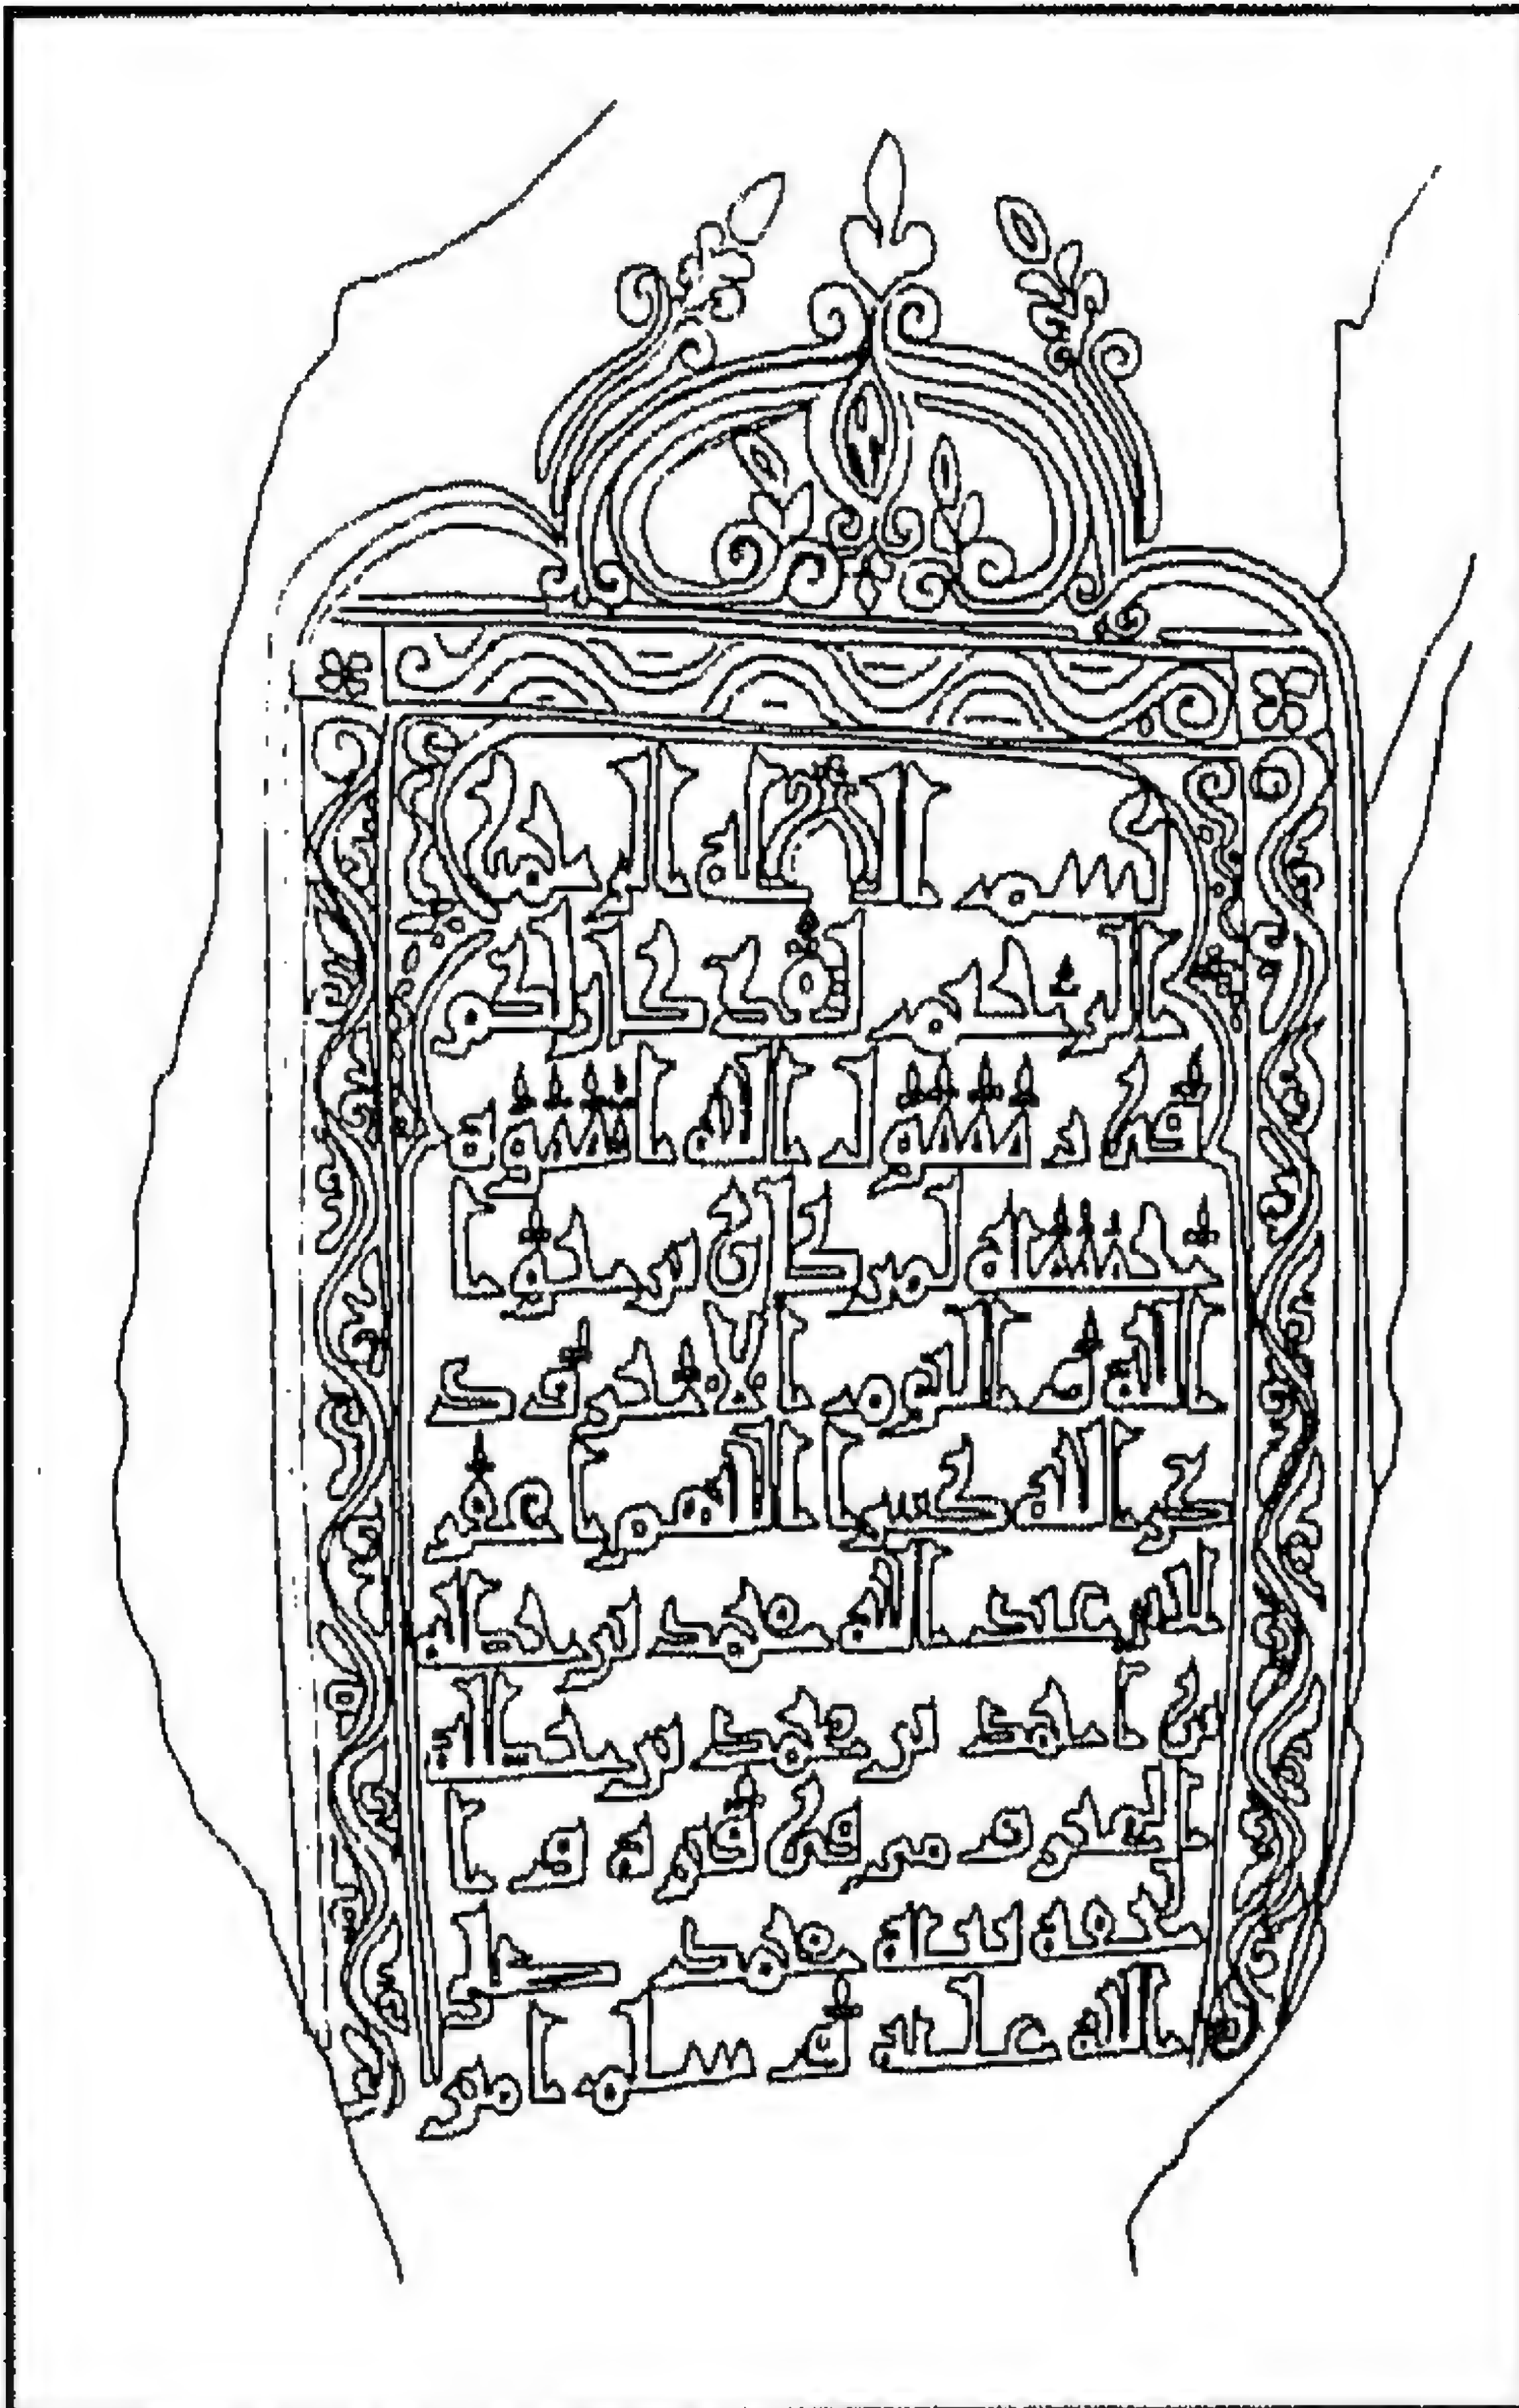 بسم الله الرحمن
الرحيم لقد كان لكم
في رسول الله اسوة
حسنة لمن كان يرجوا
الله و اليوم الاخر و ذ
كر الله كثيرا اللهم اغفر
عبد الله محمد بن
بن احمد بن محمد بن
المعروف و ا
لحقه بنبيه محمد صلى
الله عليه و سلم امين